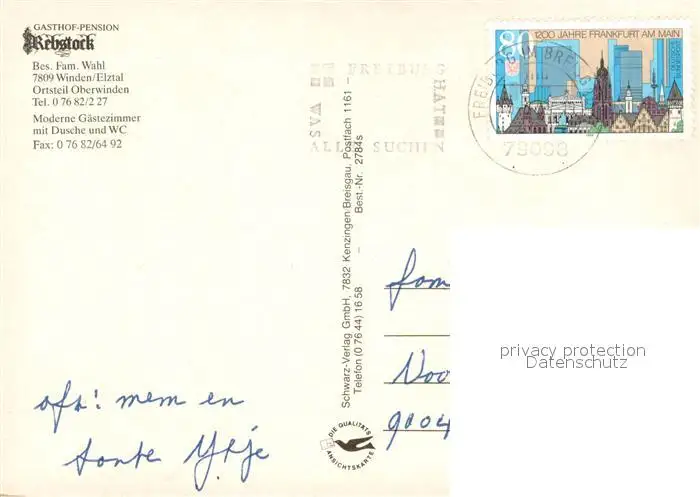 GASTHOF-PENSION
Rebstock
Bes. Fam. Wahl
7809 Winden/Elztal
Ortsteil Oberwinden
Tel. 0 76 82/2 27
Moderne Gästezimmer
mit Dusche und WC
Fax: 0 76 82/64 92
80 1200 JAHRE FRANKFURT AM MAIN
FREIBURG IM BREISGAU
79098
FREIBURG
HAT
WAS
ALLE SUCHEN
Schwarz-Verlag GmbH, 7832 Kenzingen/Breisgau, Postfach 1161 –
Telefon (0 76 44) 16 58 – Best.-Nr. 2784s
fam
Noo
9004
privacy protection
Datenschutz
afz: mem en
tante Ytje
DIE QUALITÄTS
ANSICHTSKARTE